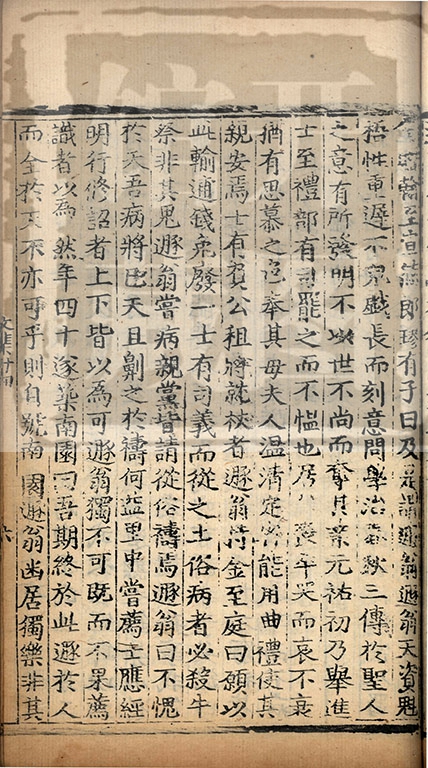 翰至宣德郎璆有子曰及是謂遯翁遯翁天資魁
梧性重遲不兒戲長而刻意問學治春秋三傳於聖人
之意有所發明不以世不尚而奪其業元祐初乃舉進
士至禮部有司罷之而不慍也居喪年哭而哀不衰
猶有思慕之色奉其母夫人溫凊定省能用曲禮使其
親安焉士有負公租將就校者遯翁荷金至庭曰願以
此輸通錢免廢一士有司義而從之土俗病者必殺牛
祭非其鬼遯翁嘗病親黨皆請從俗禱焉遯翁曰不愧
於天吾病將已天且劓之於禱何益里中嘗薦士應經
明行修詔者上下皆以為可遯翁獨不可既而不果薦
識者以為然年四十遂築南園曰吾期終於此遯於人
而全於天不亦可乎則自號南園遯翁幽居獨樂非其
文集十四
六